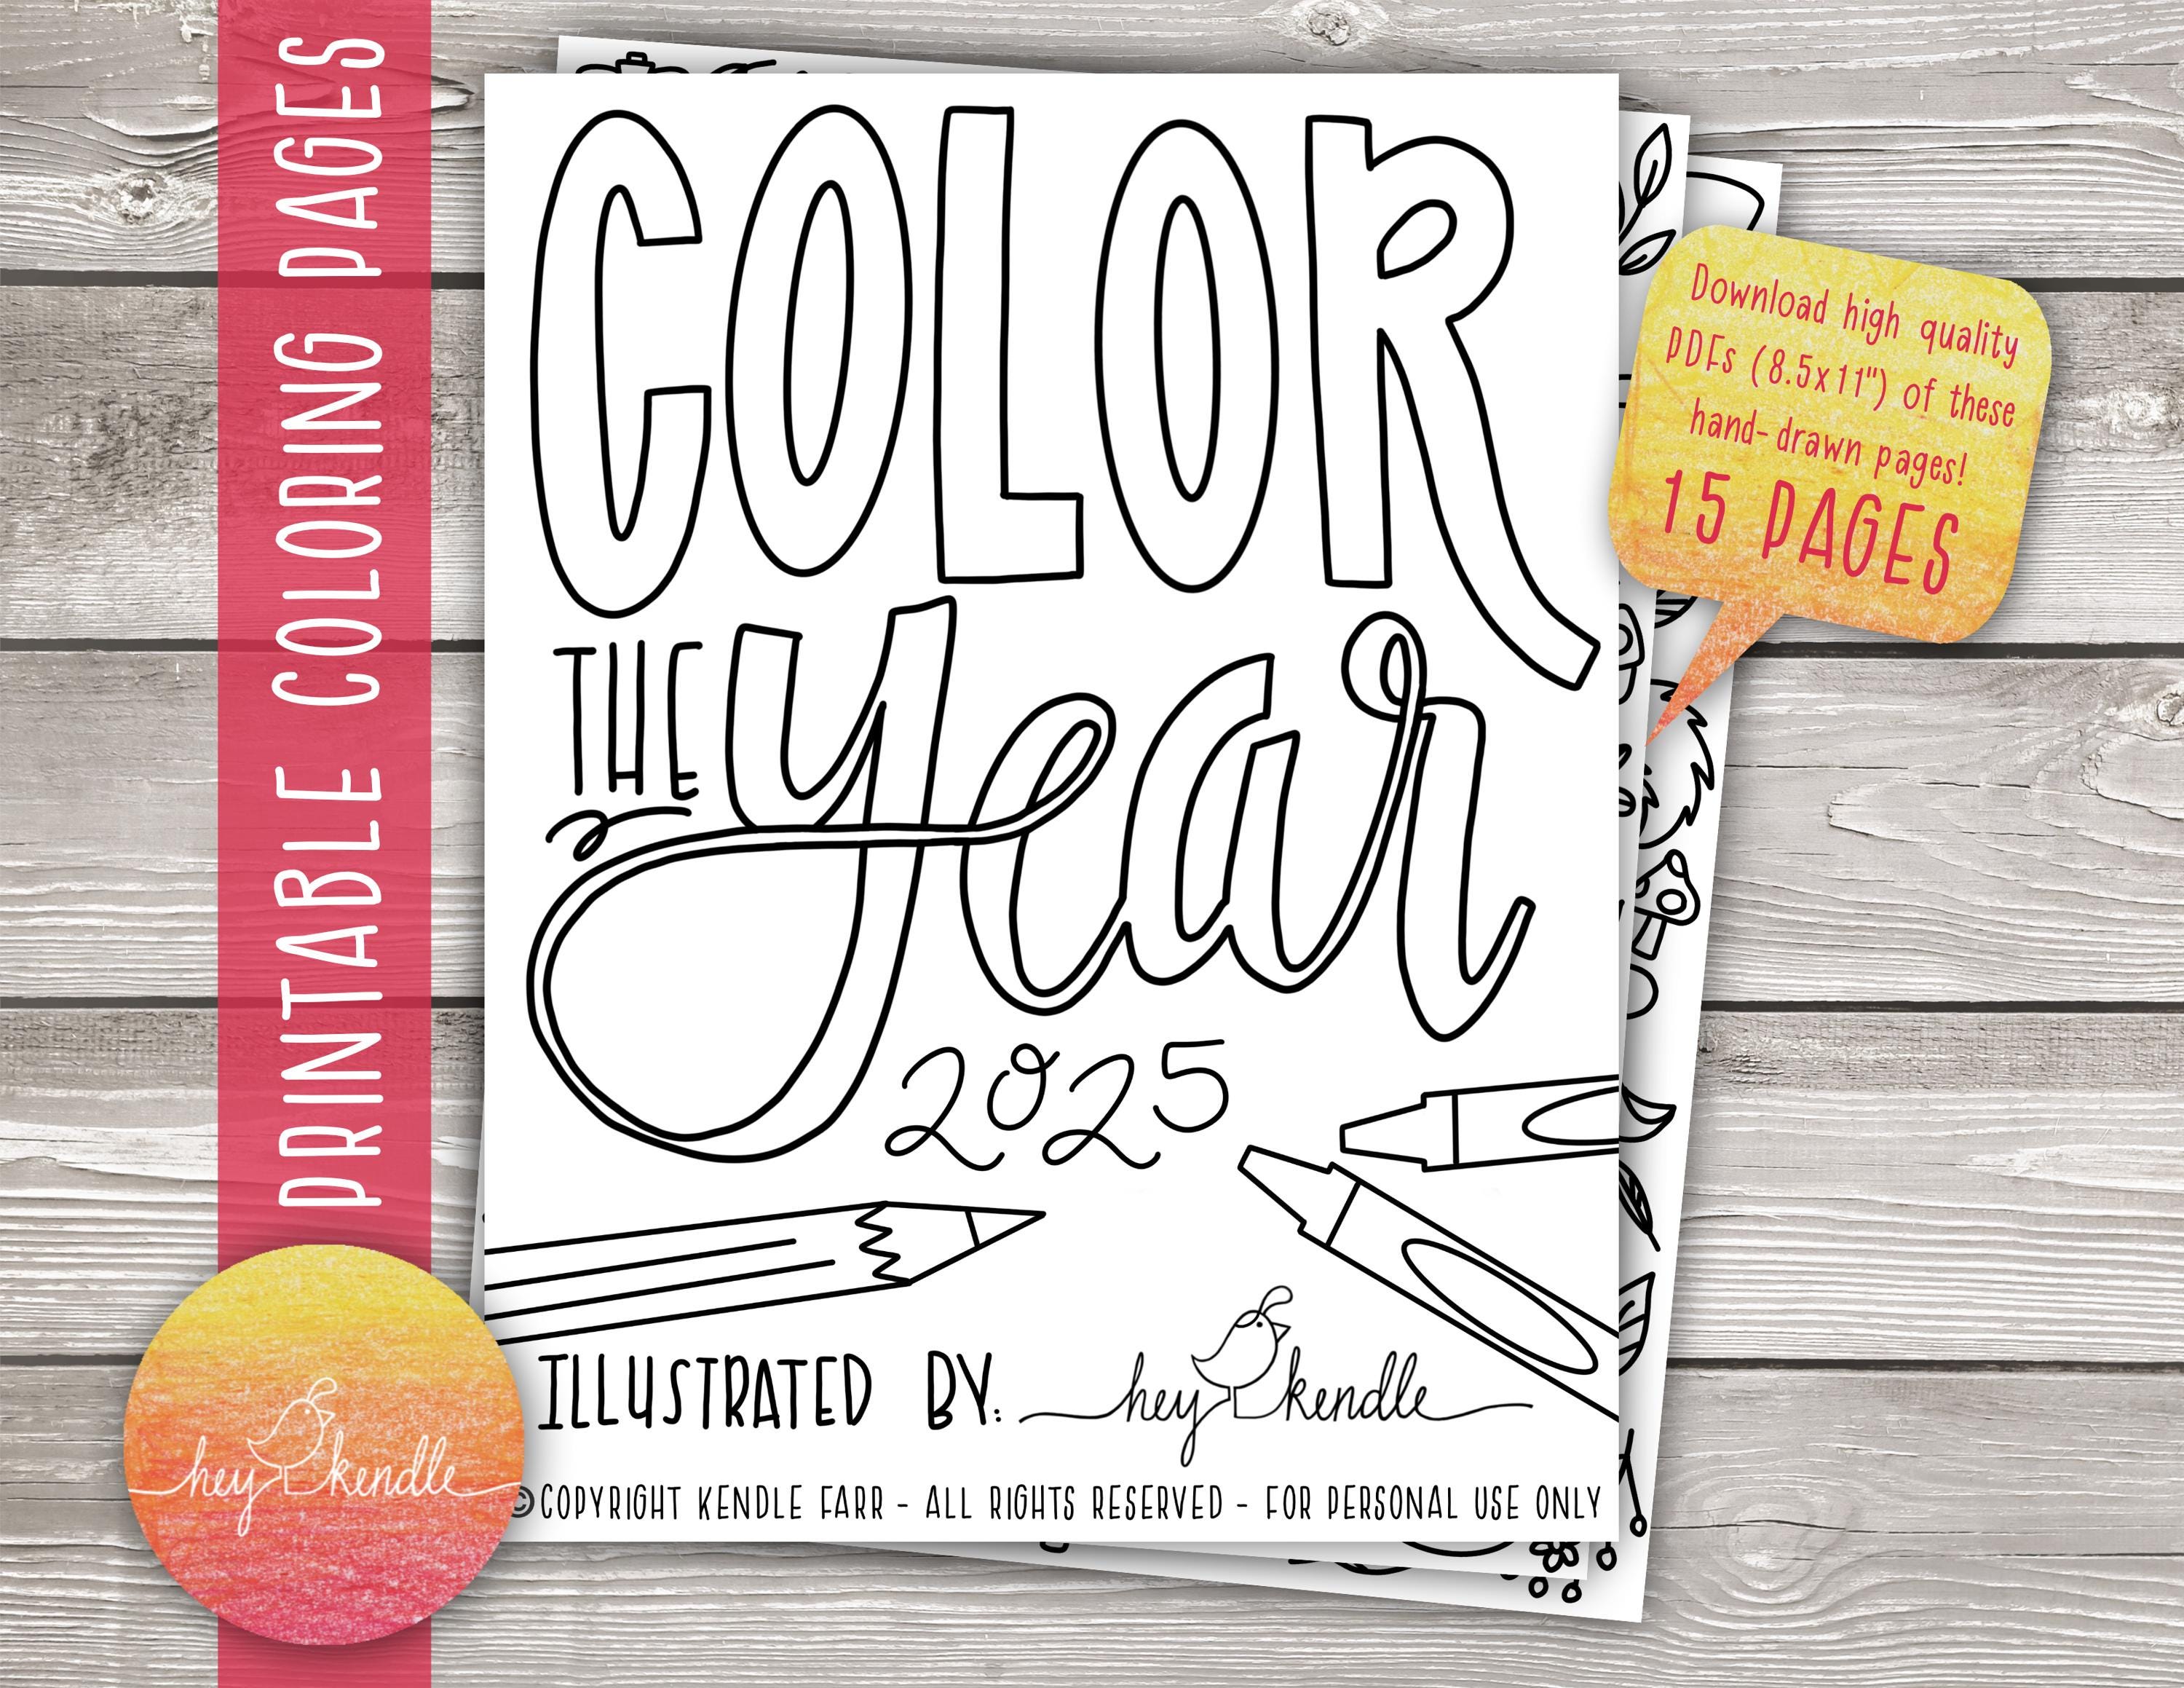 PRINTABLE COLORING PAGES
COLOR
THE year
2025
ILLUSTRATED BY: hey kendle
©COPYRIGHT KENDLE FARR - ALL RIGHTS RESERVED - FOR PERSONAL USE ONLY
Download high quality
PDFs (8.5x11") of these
hand-drawn pages!
15 PAGES
hey kendle